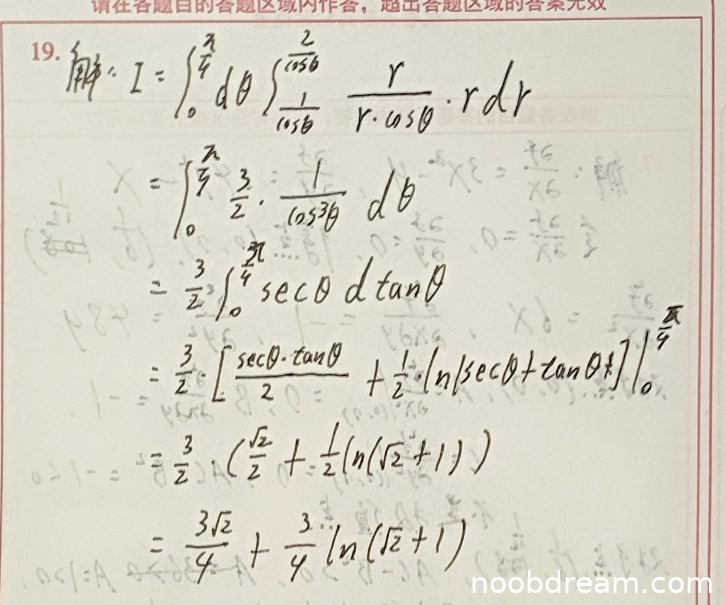 请在各题目的答题区域内作答，超出答题区域的答案无效
19. 解: I = ∫₀^{π/4} dθ ∫_{1/cosθ}^{2/cosθ} r/(r·cosθ) · r dr
= ∫₀^{π/4} 3/2 · 1/cos³θ dθ
= 3/2 ∫₀^{π/4} secθ d tanθ
= 3/2 · [secθ·tanθ/2 + 1/2 · ln|secθ+tanθ|] |₀^{π/4}
= 3/2 · (√2/2 + 1/2 ln(√2+1))
= 3√2/4 + 3/4 ln(√2+1)
noobdream.com